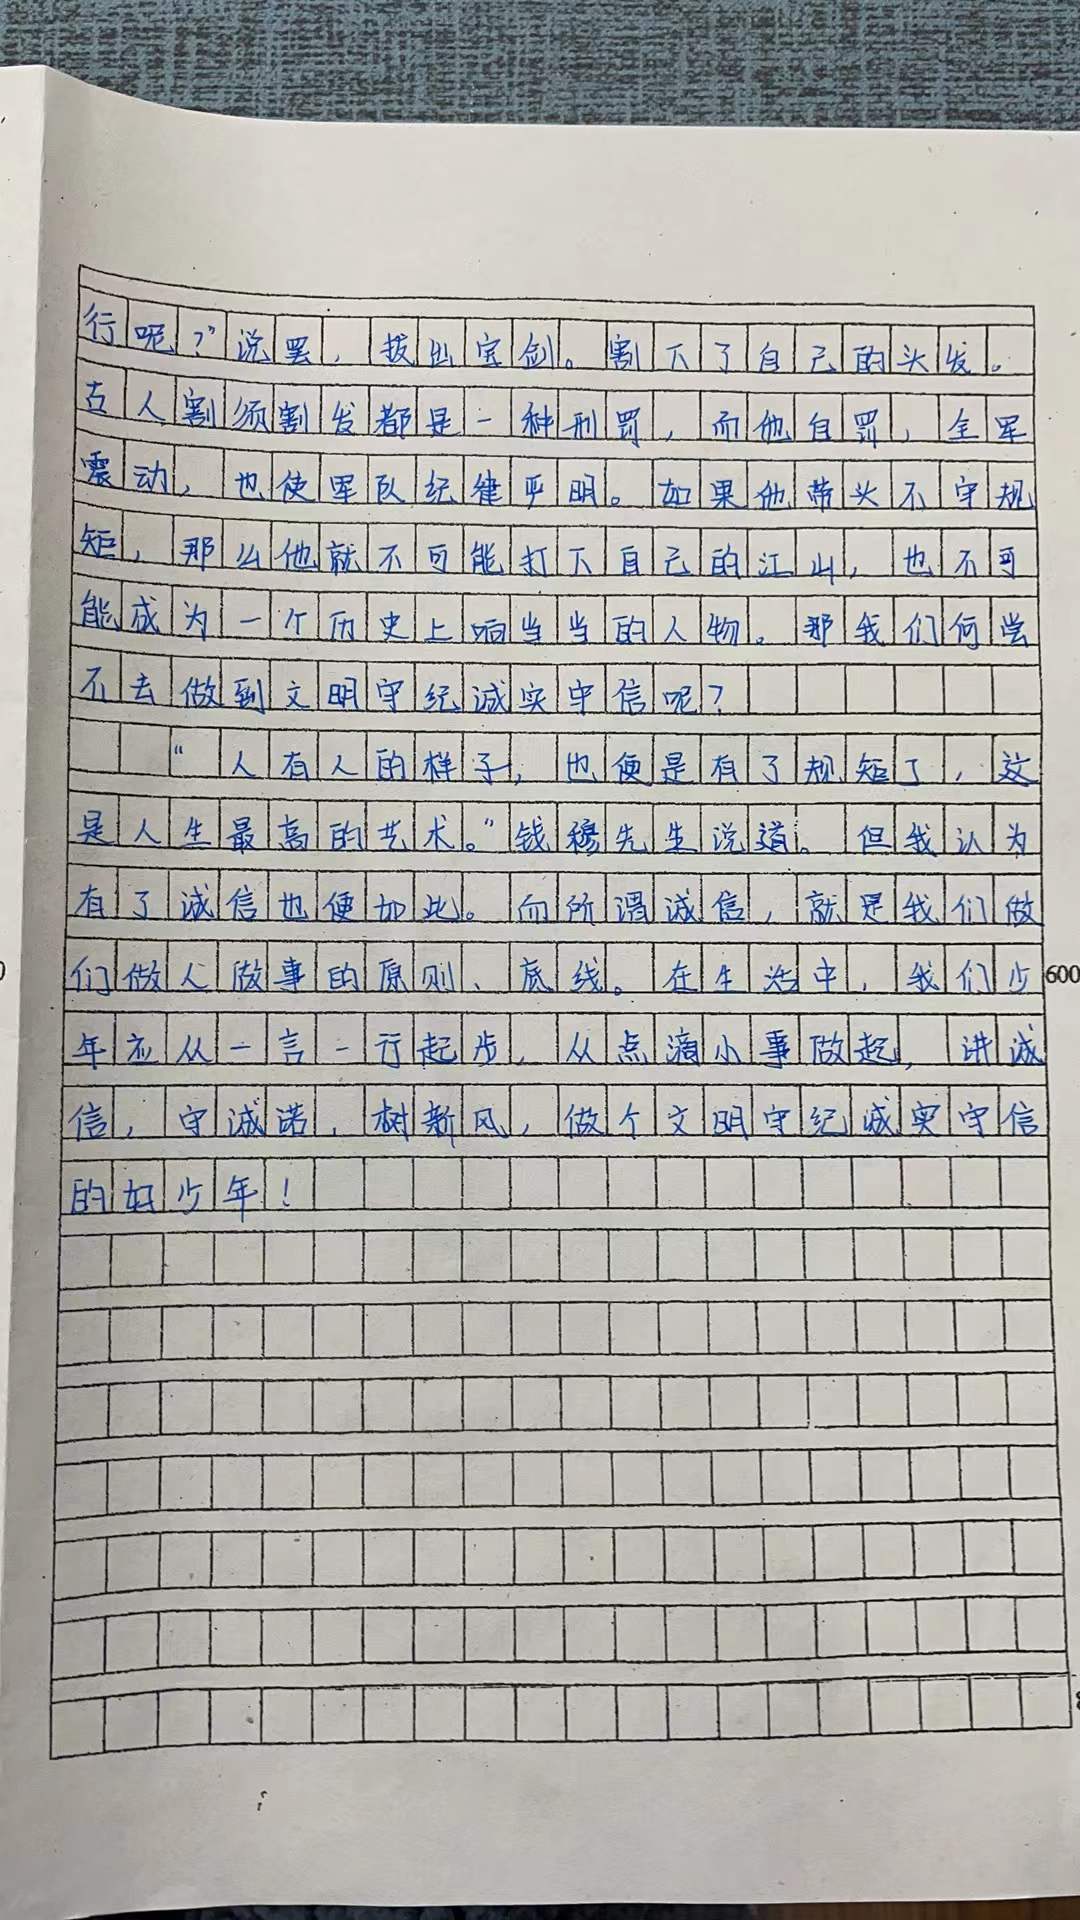 行呢？”说罢，拔出宝剑。割下了自己的头发。
古人割须割发都是一种刑罚，而他自罚，全军
震动，也使军队纪律严明。如果他带头不守规
矩，那么他就不可能打下自己的江山，也不可
能成为一个历史上响当当的人物。那我们何尝
不去做到文明守纪诚实守信呢？
“人有人的样子，也便是有了规矩了，这
是人生最高的艺术。”钱穆先生说道。但我认为
有了诚信也便如此。而所谓诚信，就是我们做
们做人做事的原则、底线。在生活中，我们少
600
年应从一言一行起步，从点滴小事做起，讲诚
信，守诚诺，树新风，做个文明守纪诚实守信
的好少年！